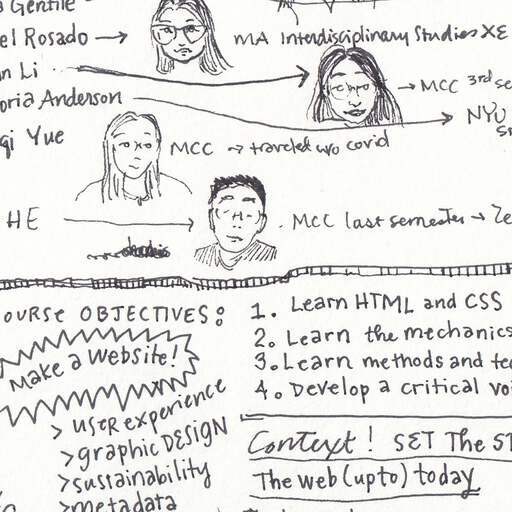 Gentile
el Rosado
MA Interdisciplinary Studies XE
n Li
MCC 3rd se
oria Anderson
NYU
qi Yue
MCC traveled w/o covid
HE
MCC last semester
OURSE OBJECTIVES:
Make a website!
> USER experience
> graphic DESIGN
> sustainability
> metadata
1. Learn HTML and CSS
2. Learn the mechanics
3. Learn methods and te
4. Develop a critical voi
Context! SET THE ST
The web (up to) today